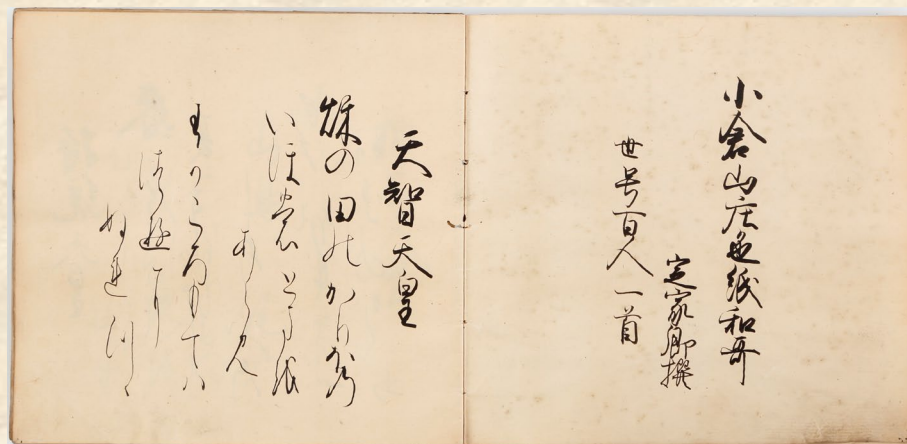 小倉山庄色紙和哥
定家卿撰
世号百人一首
天智天皇
秌の田のかりほの
いほ能とまを
あらみ
わかころもては
つゆに
ぬれつゝ